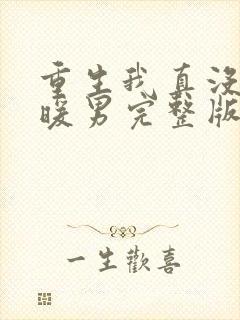 重生我真没
暖男完整版
一生歡喜